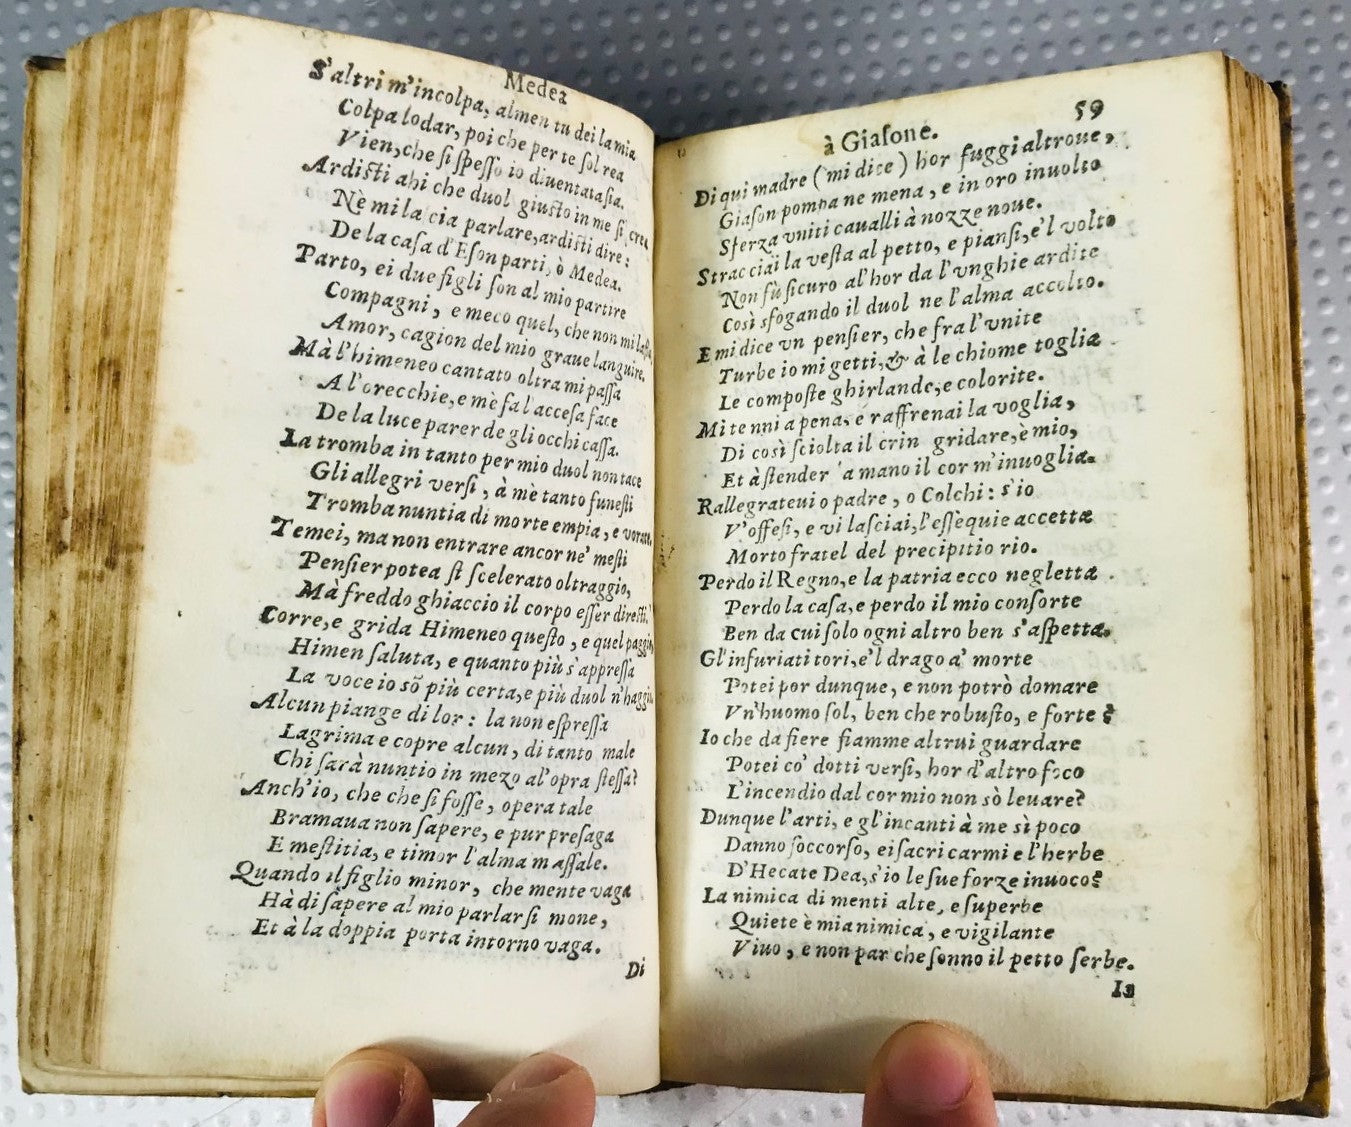 Medea
S'altri m'incolpa, almen tu dei la mia
Colpa lodar, poi che per te ſol rea
Vien, che ſi ſpeſſo io diuentata ſia.
Ardiſti ahi che duol giuſto in me ſi crea
Nè mi laſcia parlare, ardiſti dire:
De la caſa d'Eſon parti, ò Medea.
Parto, ei due figli ſon al mio partire
Compagni, e meco quel, che non mi laſſa
Amor, cagion del mio graue languire.
Mà l'himeneo cantato oltra mi paſſa
A l'orecchie, e mè fa l'acceſa face
De la luce parer de gli occhi caſſa.
La tromba in tanto per mio duol non tace
Gli allegri verſi, à mè tanto funeſti
Tromba nuntia di morte empia, e vorace.
Temei, ma non entrare ancor ne' meſti
Penſier potea ſi ſcelerato oltraggio,
Mà freddo ghiaccio il corpo eſſer direſti.
Corre, e grida Himeneo queſto, e quel paggio
Himen ſaluta, e quanto più s'appreſſa
La voce io sõ più certa, e più duol n'haggio.
Alcun piange di lor: la non eſpreſſa
Lagrima e copre alcun, di tanto male
Chi ſarà nuntio in mezo al'opra ſteſſa?
Anch'io, che che ſi foſſe, opera tale
Bramaua non ſapere, e pur preſaga
E meſtitia, e timor l'alma maſſale.
Quando il figlio minor, che mente vaga
Hà di ſapere al mio parlar ſi mone,
Et à la doppia porta intorno vaga.
Di
à Giaſone.
59
Di qui madre (mi dice) hor fuggi altroue,
Giaſon pompa ne mena, e in oro inuolto
Sferza vniti caualli à nozze noue.
Stracciai la veſta al petto, e pianſi, e'l volto
Non fù ſicuro al'hor da l'vnghie ardite
Così sfogando il duol ne l'alma accolto.
E mi dice vn penſier, che fra l'vnite
Turbe io mi getti, & à le chiome toglia
Le compoſte ghirlande, e colorite.
Mi tenni a pena, e raffrenai la voglia,
Di così ſciolta il crin gridare, è mio,
Et à ſtender a mano il cor m'inuoglia.
Rallegrateui o padre, o Colchi: s'io
V'offeſi, e vi laſciai, l'eſſequie accetta
Morto fratel del precipitio rio.
Perdo il Regno, e la patria ecco negletta.
Perdo la caſa, e perdo il mio conſorte
Ben da cui ſolo ogni altro ben s'aſpetta.
Gl'infuriati tori, e'l drago a' morte
Potei por dunque, e non potrò domare
Vn'huomo ſol, ben che robuſto, e forte?
Io che da fiere fiamme altrui guardare
Potei co' dotti verſi, hor d'altro foco
L'incendio dal cor mio non sò leuare?
Dunque l'arti, e gl'incanti à me sì poco
Danno ſoccorſo, ei ſacri carmi e l'herbe
D'Hecate Dea, s'io le ſue forze inuoco?
La nimica di menti alte, e ſuperbe
Quiete è mia nimica, e vigilante
Viuo, e non par che ſonno il petto ſerbe.
Ia